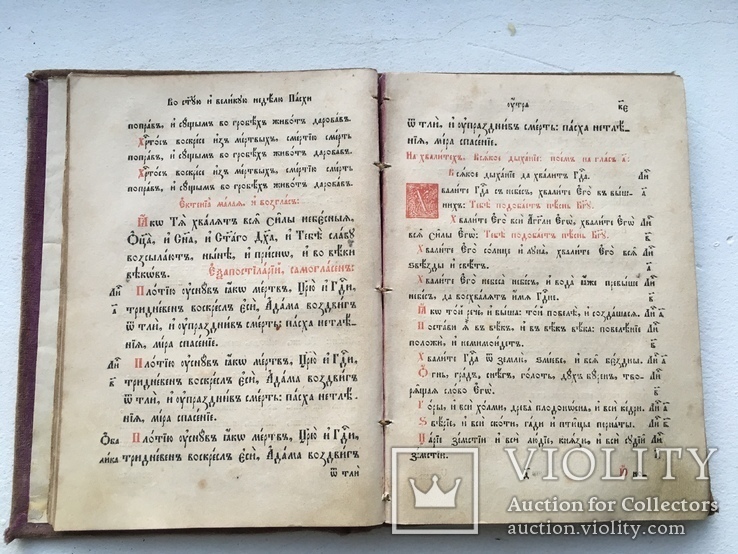 Во ст҃ую и҆ вели́кую недѣ́лю Па́схи
попра́въ, и҆ сꙋ́щымъ во гробѣ́хъ живо́тъ дарова́въ.
Хрⷭ҇то́съ воскре́се и҆зъ ме́ртвыхъ, сме́ртїю сме́рть
попра́въ, и҆ сꙋ́щымъ во гробѣ́хъ живо́тъ дарова́въ.
Хрⷭ҇то́съ воскре́се и҆зъ ме́ртвыхъ, сме́ртїю сме́рть
попра́въ, и҆ сꙋ́щымъ во гробѣ́хъ живо́тъ дарова́въ.
Е҆ктенїа̀ ма́лаѧ, и҆ во́згласъ:
Ꙗ҆́кѡ Тѧ̀ хва́лѧтъ всѧ̑ си̑лы небе́сныѧ,
Ѻ҆ц҃а̀, и҆ Сн҃а, и҆ Ст҃а́гѡ Дх҃а, и҆ Тебѣ̀ сла́вꙋ
возсыла́ютъ, ны́нѣ, и҆ при́снѡ, и҆ во вѣ́ки
вѣкѡ́въ. Е҆ѯапостїла́рїй, самогла́сенъ:
Пло́тїю ᲂу҆снꙋ́въ ꙗ҆́кѡ ме́ртвъ, Цр҃ю̀ и҆ Гдⷭ҇и,
тридне́венъ воскре́слъ є҆сѝ, А҆да́ма воздви́гъ
ѿ тлѝ, и҆ ᲂу҆праздни́въ сме́рть: па́сха нетлѣ́-
нїѧ, мі́ра спасе́нїе.
Пло́тїю ᲂу҆снꙋ́въ ꙗ҆́кѡ ме́ртвъ, Цр҃ю̀ и҆ Гдⷭ҇и,
тридне́венъ воскре́слъ є҆сѝ, А҆да́ма воздви́гъ
ѿ тлѝ, и҆ ᲂу҆праздни́въ сме́рть: па́сха нетлѣ́-
нїѧ, мі́ра спасе́нїе.
Ѻ҆́ба Пло́тїю ᲂу҆снꙋ́въ ꙗ҆́кѡ ме́ртвъ, Цр҃ю̀ и҆ Гдⷭ҇и,
ли́ка тридне́венъ воскре́слъ є҆сѝ, А҆да́ма воздви́гъ
ѿ тлѝ
ᲂу҆́тра
ѿ тлѝ, и҆ ᲂу҆праздни́въ сме́рть: па́сха нетлѣ́-
нїѧ, мі́ра спасе́нїе.
На хвали́техъ. Всѧ́кое дыха́нїе: пое́мъ на гла́съ а҃:
Всѧ́кое дыха́нїе да хва́литъ Гдⷭ҇а.
Хвали́те Гдⷭ҇а съ небе́съ, хвали́те Є҆го̀ въ вы́ш-
нихъ: Тебѣ̀ подоба́етъ пѣ́снь Бг҃ꙋ.
Хвали́те Є҆го̀ всѝ А҆́гг҃ли Є҆гѡ̀, хвали́те Є҆го̀
всѧ̑ си̑лы Є҆гѡ̀: Тебѣ̀ подоба́етъ пѣ́снь Бг҃ꙋ.
Хвали́те Є҆го̀ со́лнце и҆ лꙋна̀, хвали́те Є҆го̀ всѧ̑
ѕвѣ́зды и҆ свѣ́тъ.
Хвали́те Є҆го̀ небеса̀ небе́съ, и҆ вода̀ ꙗ҆́же превы́ше
небе́съ, да восхва́лѧтъ и҆́мѧ Гдⷭ҇не.
Ꙗ҆́кѡ то́й речѐ, и҆ бы́ша: то́й повелѣ̀, и҆ созда́шасѧ.
Поста́ви ѧ҆̀ въ вѣ́къ, и҆ въ вѣ́къ вѣ́ка: повелѣ́нїе
положѝ, и҆ не мимои́детъ.
Хвали́те Гдⷭ҇а ѿ землѝ, ѕмі́еве, и҆ всѧ̑ бє́здны.
Ѻ҆́гнь, гра́дъ, снѣ́гъ, го́лоть, дꙋ́хъ бꙋ́ренъ, тво-
рѧ́щаѧ сло́во Є҆гѡ̀.
Го́ры, и҆ всѝ хо́лми, древа̀ плодонѡ́сна, и҆ всѝ ке́дри.
Ѕвѣ́рїе, и҆ всѝ ско́ти, га́ди и҆ пти̑цы перна̑ты.
Ца́рїе зе́мстїи и҆ всѝ лю́дїе, кнѧ̑зи, и҆ всѝ сꙋдїи̑
зе́мстїи.
VIOLITY
Auction for Collectors
auction.violity.com